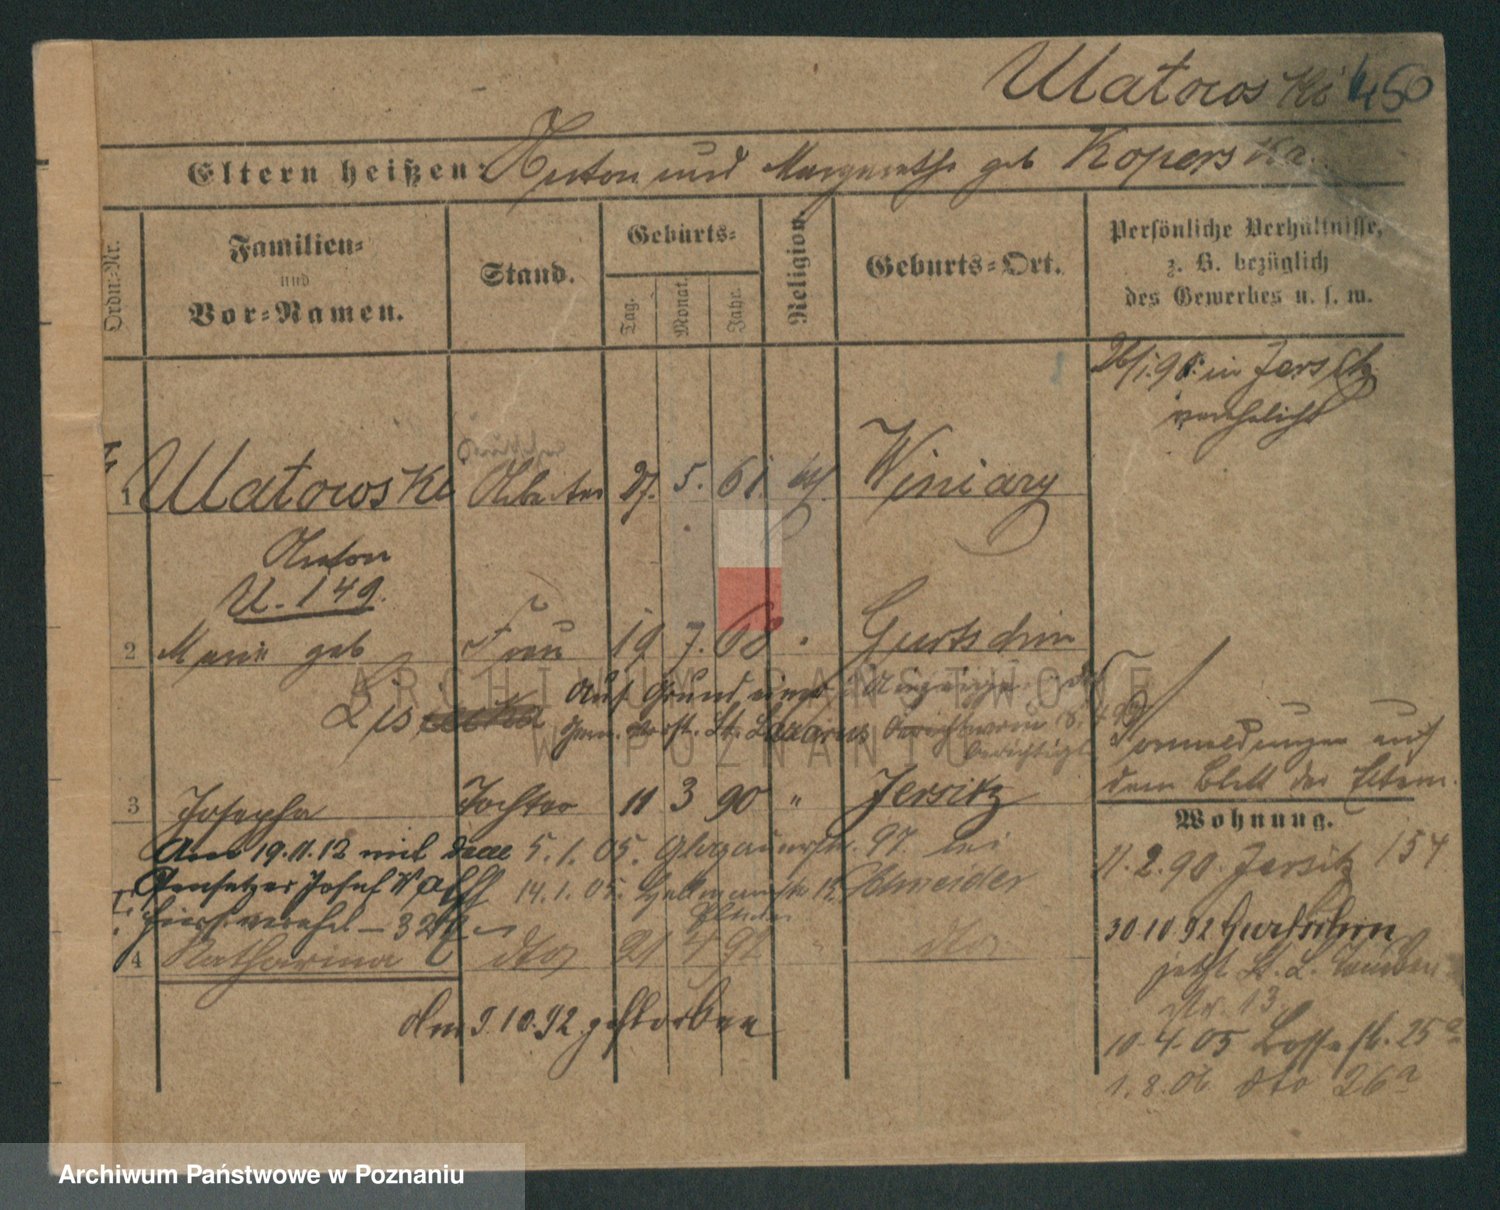 Ulatowski 450
Eltern heißen: Anton und Margarethe geb Koperska.
Ordn.-Nr.
Familien-
und
Vor-Namen.
Stand.
Geburts-
Tag.
Monat.
Jahr.
Religion.
Geburts-Ort.
Persönliche Verhältnisse,
z. B. bezüglich
des Gewerbes u. s. w.
in Jersitz
verehelicht
1 Ulatowski Arbeiter 27. 5. 61. kth. Winiary
Anton
U. 149.
2 Marie geb Frau 19 7. 68 " Gurtschin
Auf Grund einer
Gem. Vorst. St. Lazarus
berichtigt
Vormeldungen auf
dem Blatt der Eltern.
3 Josepha Tochter 11 3 90 " Jersitz
Wohnung.
Am 19.11.12 mit dem 5. 1. 05. Glogauerstr. 97 bei
11. 2. 90. Jersitz 154
Josef 14. 1. 05. Schneider
hiers. verehel.
30 10 92 Gurtschin
4 Katharina dto 21 4 92 " dto
jetzt St. L.
str. 13
Am 9.10.92 gestorben
10. 4. 05 25a
1. 8. 06 dto 26a
ARCHIWUM PAŃSTWOWE
W POZNANIU
Archiwum Państwowe w Poznaniu